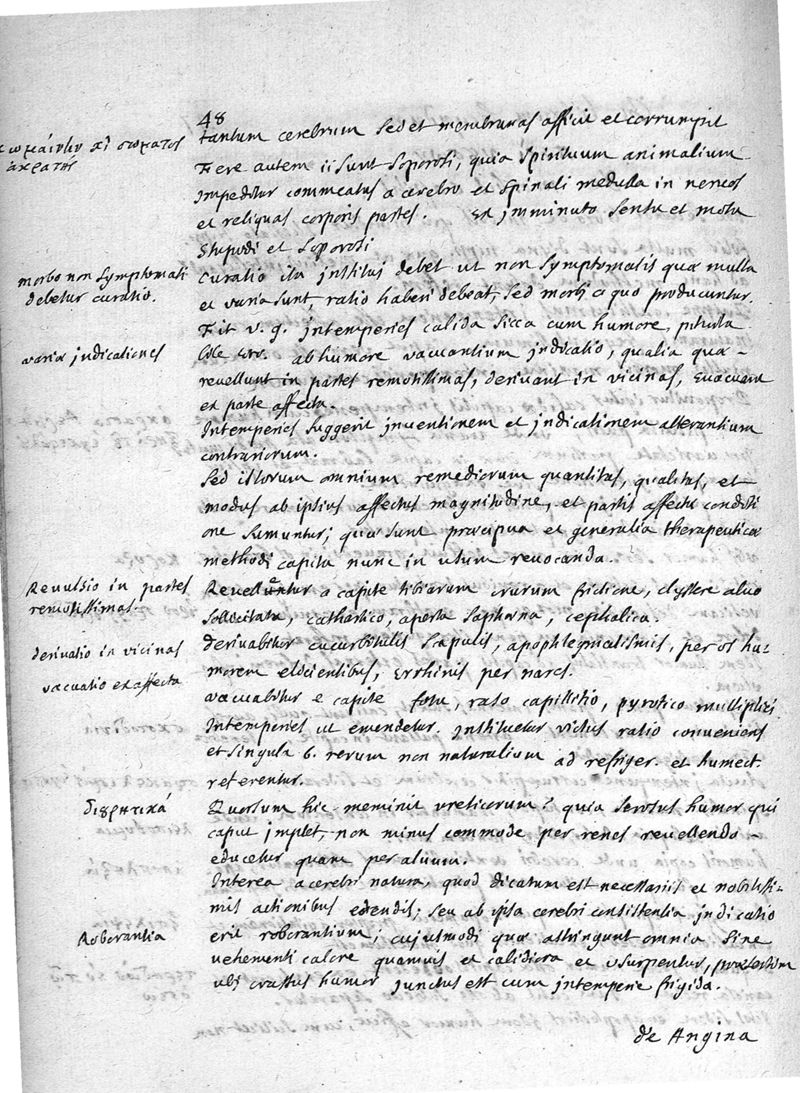 48
tantum cerebrum sed et membranas afficit et corrumpit
ἀκρατής
Fere autem ii sunt soporosi, quia spirituum animalium
Impeditur commeatus a cerebro et spinali medulla in nervos
et reliquas corporis partes. Ex imminuto sensu et motu
Stupidi et soporosi
morbo non symptomati
debetur curatio.
Curatio ita institui debet ut non symptomatis quæ multa
et varia sunt, ratio haberi debeat, sed morbi a quo producuntur.
Fit v. g. intemperies calida sicca cum humore, pituita
variæ indicationes
bile &c. ab humore vacuantium indicatio, qualia quæ
revellunt in partes remotissimas, derivant in vicinas, evacuant
ex parte affecta.
Intemperies suggerit inventionem et indicationem alterantium
contrariorum.
Sed istorum omnium remediorum quantitas, qualitas, et
modus ab ipsius affectus magnitudine, et partis affectæ conditi
one sumuntur; quæ sunt præcipua et generalia therapeuticæ
methodi capita nunc in usum revocanda.
Revulsio in partes
remotissimas.
Revelluntur a capite tibiarum crurum frictione, clystere alvo
sollicitata, cathartico, aperta saphæna, cephalica.
derivatio in vicinas
derivabitur cucurbitulis scapulis, apophlegmatismis, per os hu-
morem elicientibus, Errhinis per nares.
vacuatio ex affecta
vacuabitur e capite fotu, raso capillitio, pyrotico multiplici
Intemperies ut emendetur. instituetur victus ratio conveniens
et singula 6. rerum non naturalium ad refriger. et humect.
referentur.
διυρητικά
Quorsum hic meminit ureticorum? quia serosus humor qui
caput implet, non minus commode per renes revellendo
educetur quam per alvum.
Interea a cerebri natura, quod dicatum est necessariis et nobilissi-
mis actionibus edendis; seu ab ipsa cerebri consistentia indicatio
Roborantia
erit roborantium; cujusmodi quæ astringunt omnia sine
vehementi calore quamvis et calidiora et usurpentur, præsertim
ubi crassus humor junctus est cum intemperie frigida.
de Angina